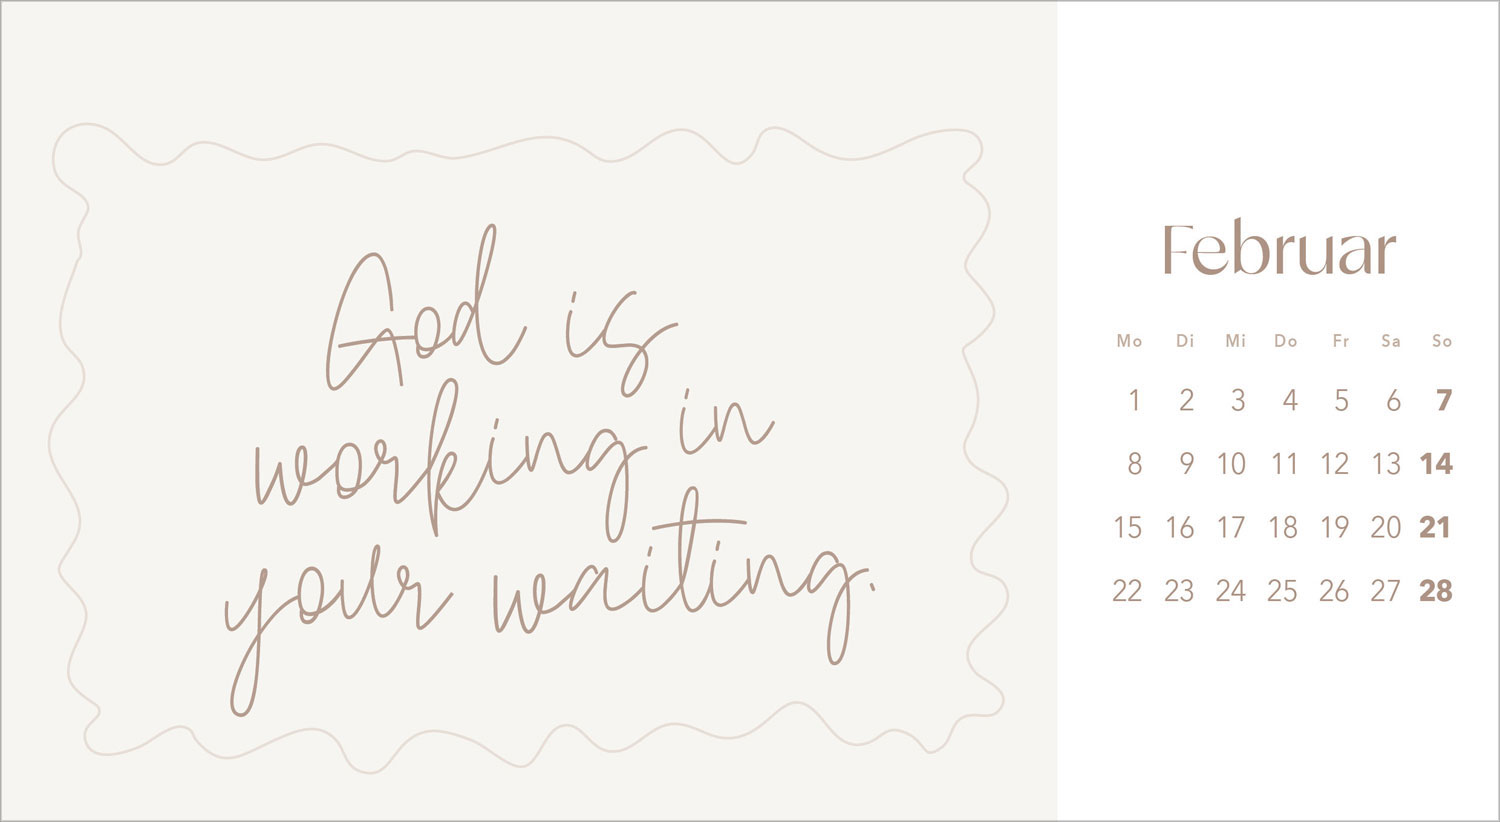 God is
working in
your waiting.
Februar
Mo Di Mi Do Fr Sa So
1 2 3 4 5 6 7
8 9 10 11 12 13 14
15 16 17 18 19 20 21
22 23 24 25 26 27 28